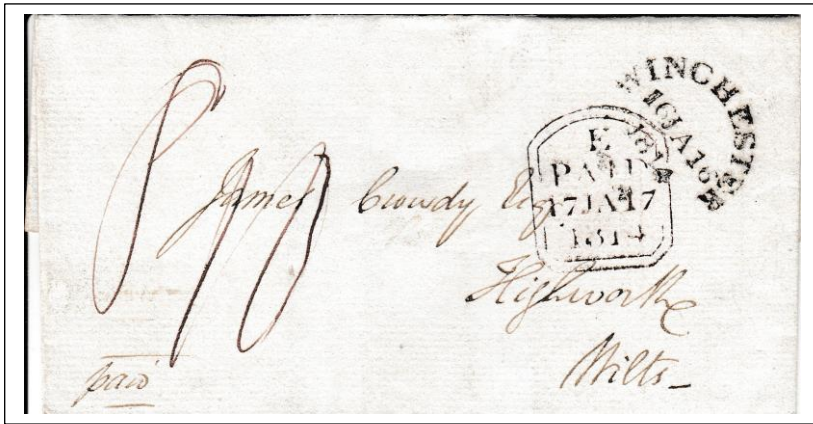 WINCHESTER
16JA16
1814
E
PAID
17JA17
1814
James Crowdy Esqr
Highworth
Wilts
paid